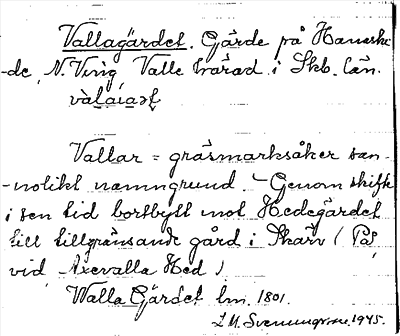 Vallagärdet. Gärde på Hanaske-
-de, N. Ving Valle härad i Skb. län.
Vallar = gräsmarksåker san-
-nolikt namngrund. - Genom skifte
i sen tid bortbytt mot Hedegärdet
till tillgränsande gård i Skärv (På
vid Axevalla Hed)
Walla Gärdet lm. 1801.
1945.